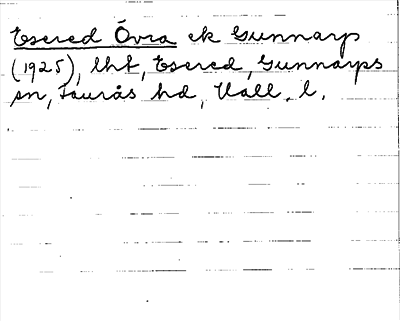 Esered Övra ek Gunnarp
(1925), lht, Esered, Gunnarps
sn, Faurås hd, Hall. l.